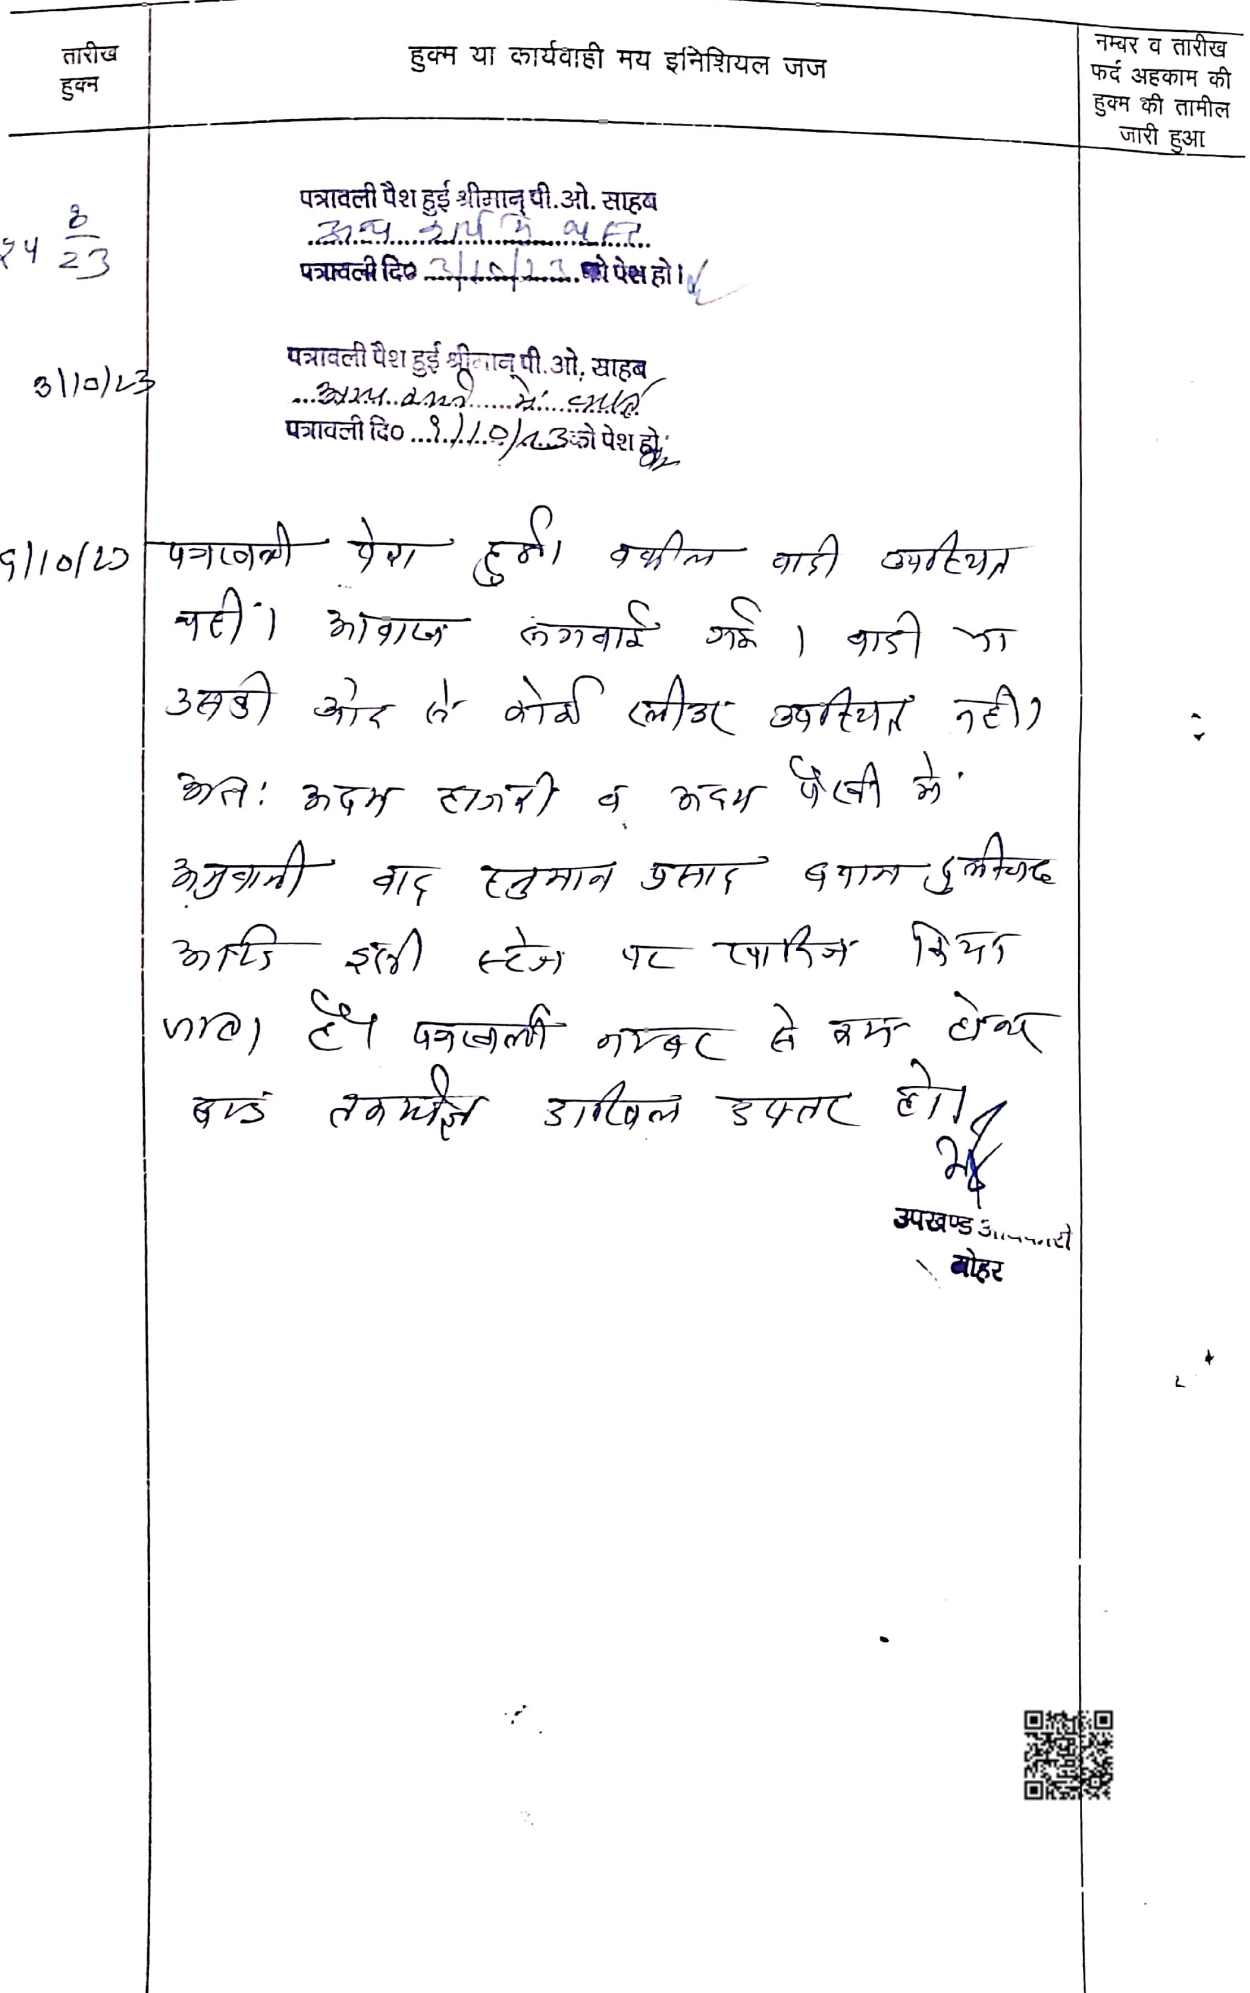 तारीख
हुक्म
हुक्म या कार्यवाही मय इनिशियल जज
नम्बर व तारीख
फर्द अहकाम की
हुक्म की तामील
जारी हुआ
पत्रावली पैश हुई श्रीमान् पी.ओ. साहब
8
24 23
अन्य कार्य में व्यस्त
पत्रावली दि० 3/10/23 को पेश हो।
पत्रावली पैश हुई श्रीमान् पी.ओ. साहब
3/10/23
अन्य कार्य में व्यस्त
पत्रावली दि० 9/10/23 को पेश हो।
9/10/23 पत्रावली पेश हुई। वकील वादी उपस्थित
नहीं। आवाज लगवाई गई। वादी या
उसकी ओर से कोई प्लीडर उपस्थित नहीं।
अतः अदम हाजरी व अदम पैरवी में
वाद हनुमान प्रसाद बनाम दुलीचन्द
आदि इसी स्टेज पर खारिज किया
जाता है। पत्रावली नम्बर से कम होकर
बाद तकमील दाखिल दफ्तर हो।
उपखण्ड अधिकारी
नोहर